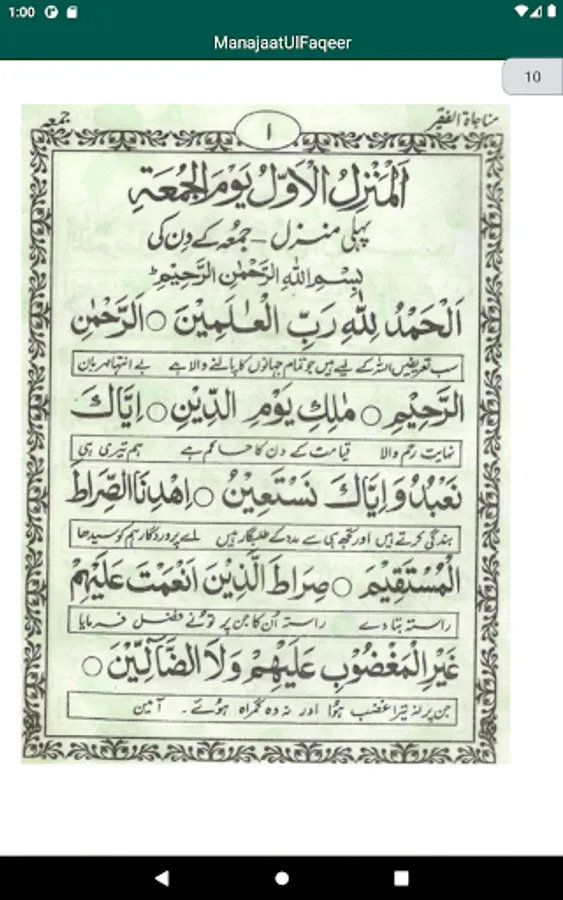 1:00
ManajaatUlFaqeer
10
مناجاۃ الفقیر
۱
جمعہ
اَلْمَنْزِلُ الْاَوَّلُ يَوْمَ الْجُمُعَةِ
پہلی منزل – جمعہ کے دن کی
بِسْمِ اللهِ الرَّحْمٰنِ الرَّحِيْمِ
اَلْحَمْدُ لِلّٰهِ رَبِّ الْعٰلَمِيْنَ ○ الرَّحْمٰنِ
سب تعریفیں اللہ کے لیے ہیں جو تمام جہانوں کا پالنے والا ہے بے انتہا مہربان
الرَّحِيْمِ ○ مٰلِكِ يَوْمِ الدِّيْنِ ○ اِيَّاكَ
نہایت رحم والا قیامت کے دن کا حاکم ہے ہم تیری ہی
نَعْبُدُ وَاِيَّاكَ نَسْتَعِيْنُ ○ اِهْدِنَا الصِّرَاطَ
بندگی کرتے ہیں اور تجھ ہی سے مدد کے طلبگار ہیں اے پروردگار ہم کو سیدھا
الْمُسْتَقِيْمَ ○ صِرَاطَ الَّذِيْنَ اَنْعَمْتَ عَلَيْهِمْ
راستہ بتا دے راستہ اُن کا جن پر تو نے فضل فرمایا
غَيْرِ الْمَغْضُوْبِ عَلَيْهِمْ وَلَا الضَّآلِّيْنَ ○
جن پر نہ تیرا غضب ہوا اور نہ وہ گمراہ ہوئے۔ آمین